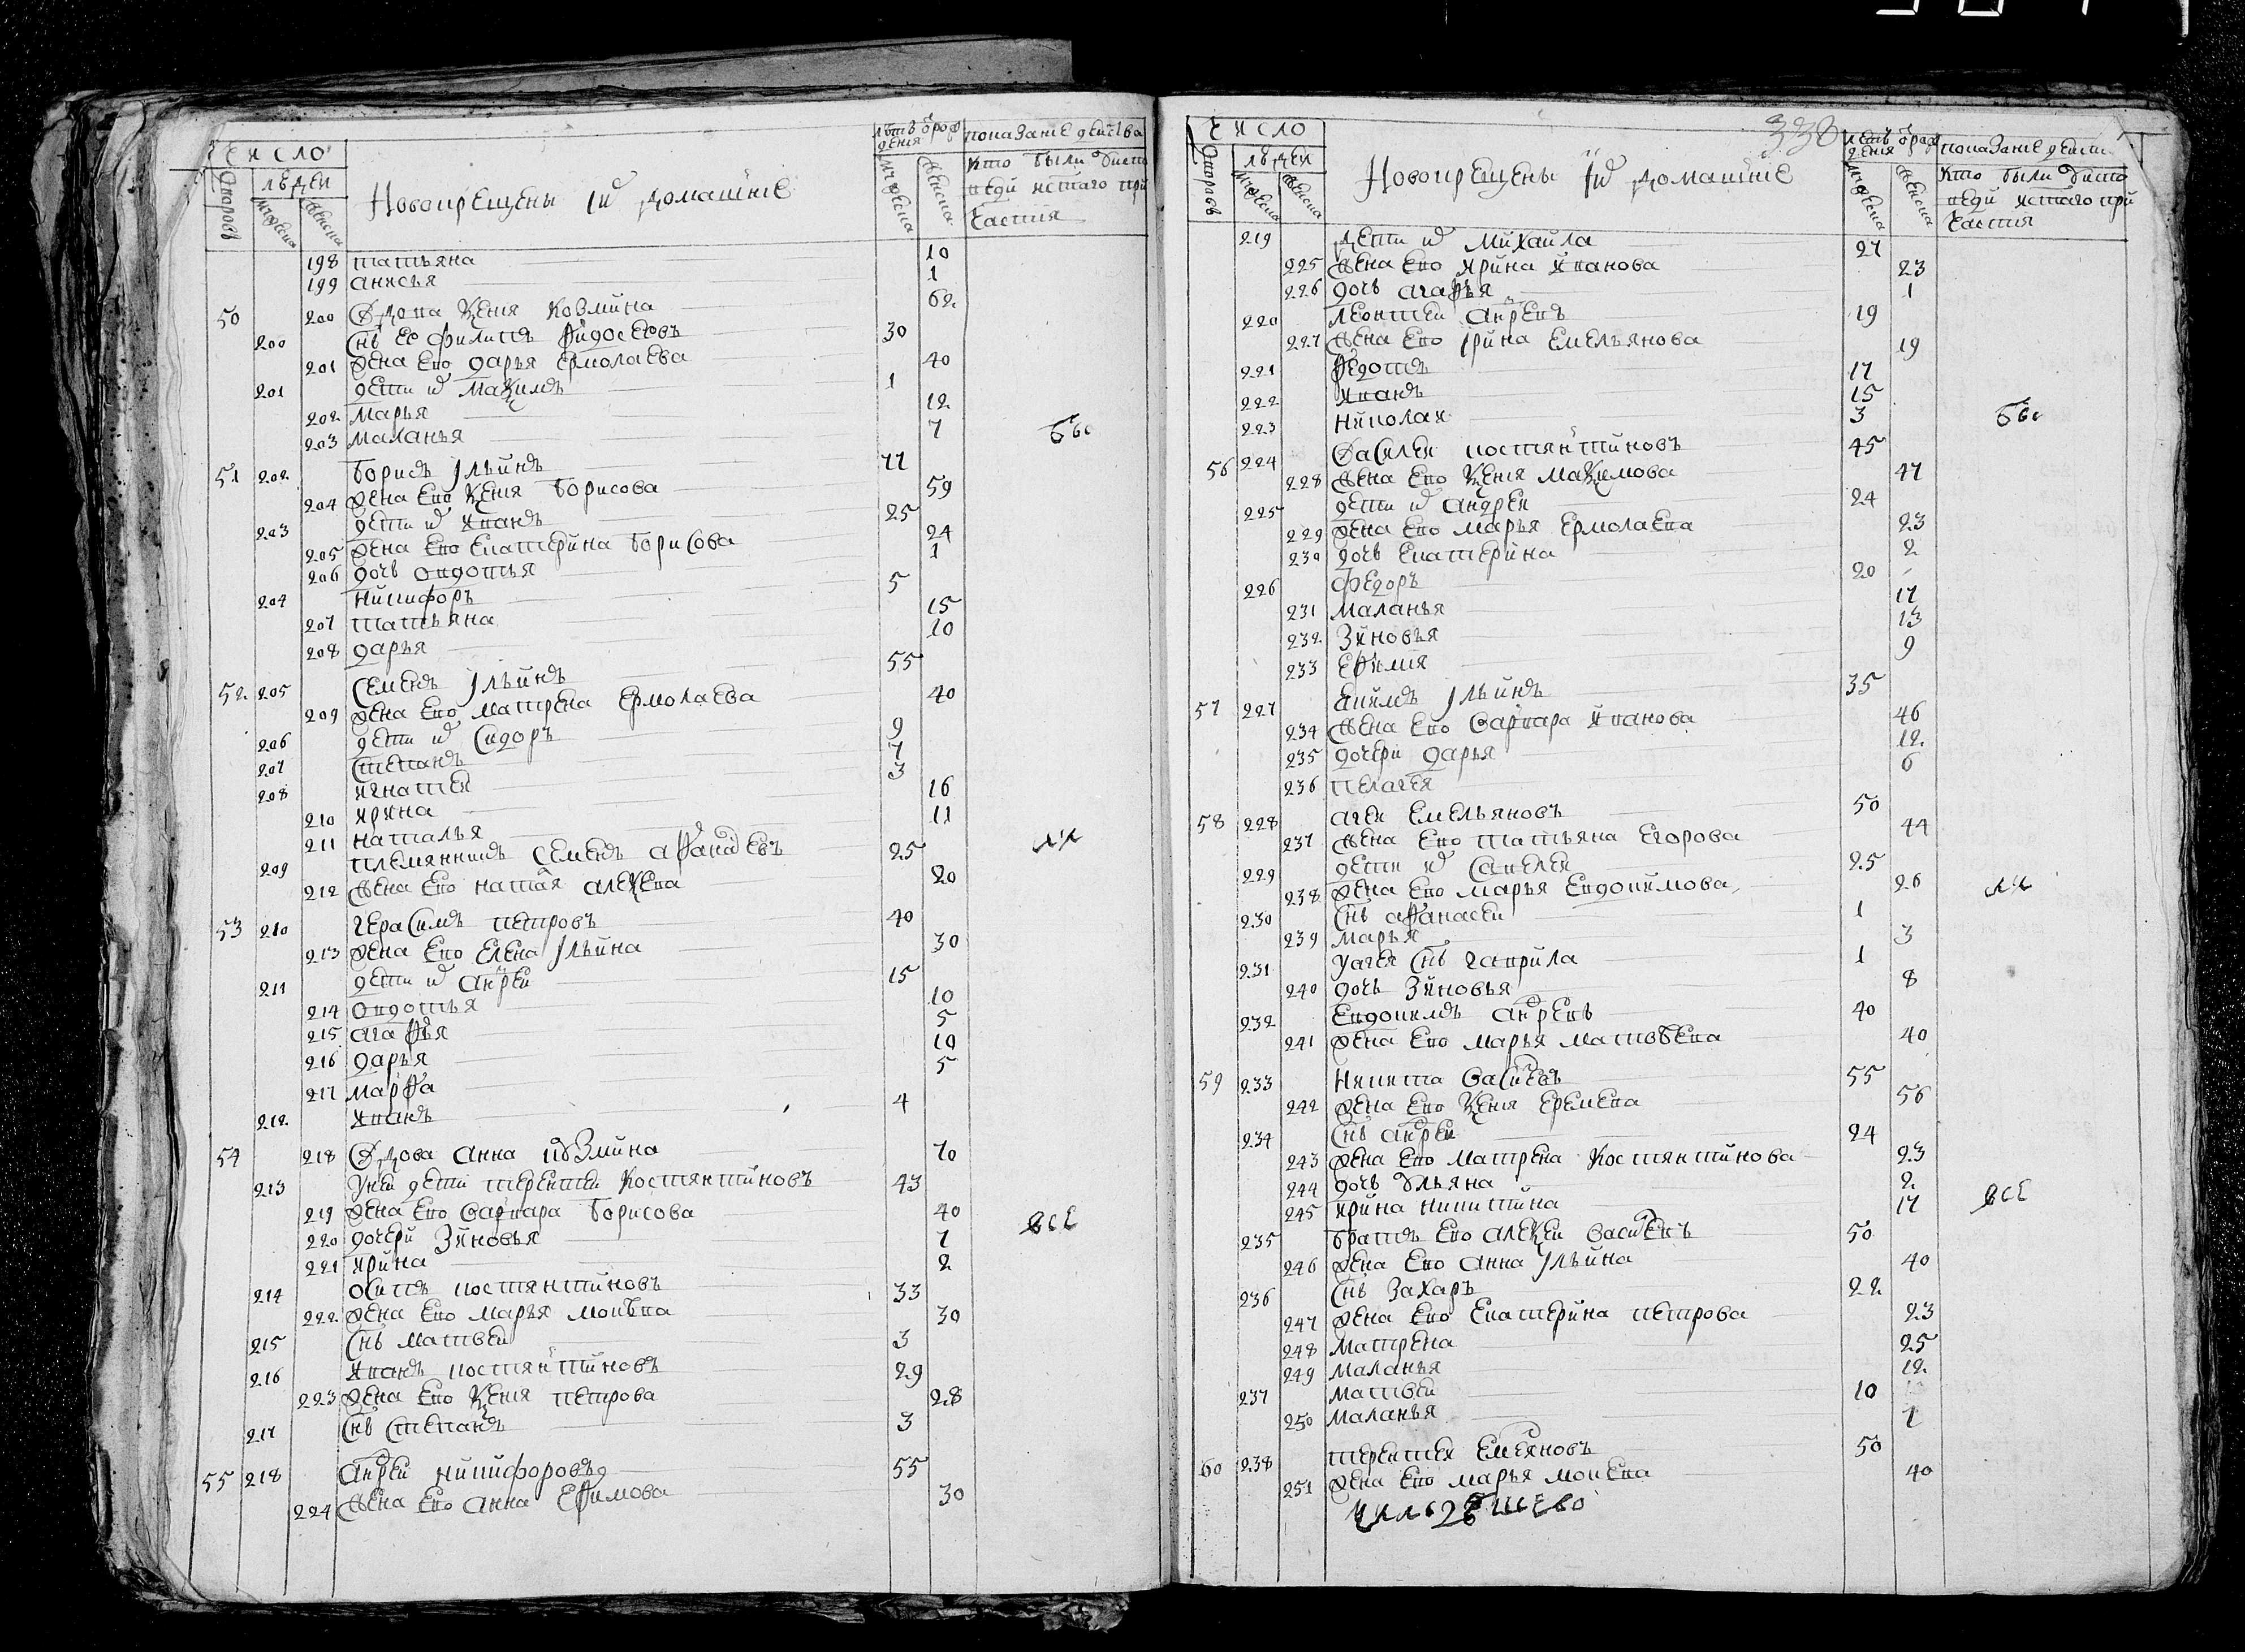 Число
людей
Новокрещены и домашние
летъ от рождения
показание действа
кто были на исповеди и святаго причастия
198 татьяна 10
199 анисья 1
50 200 Вдова Ксения Козмина 62
200 Снъ ее филипъ Федосеевъ 30
201 Жена ево дарья Ермолаева 40
201 дети их Максимъ 1
202 Марья 12
203 Маланья 7
51 202 Борисъ Ильинъ 77
204 Жена ево Ксения Борисова 59
203 дети их Иванъ 25
205 Жена ево Екатерина Борисова 24
206 дочь овдотья 1
204 Никифоръ 5
207 татьяна 15
208 дарья 10
52 205 Семенъ Ильинъ 55
209 Жена ево матрена Ермолаева 40
206 дети их Сидоръ 9
207 Степанъ 7
208 Игнатей 3
210 Ирина 16
211 наталья 11
209 племянникъ Семенъ афанасьевъ 25
212 Жена ево наталья алексева 20
53 210 герасимъ петровъ 40
213 Жена ево Елена Ильина 30
211 дети их андрей 15
214 овдотья 10
215 агафья 5
216 дарья 10
217 марфа 5
212 Иванъ 4
54 218 Вдова анна козмина 70
213 у ней дети терентей Костянтиновъ 43
219 Жена ево варвара Борисова 40
220 дочери Зиновья 7
221 Ирина 2
все
214 осипъ костянтиновъ 33
222 Жена ево марья мокеева 30
215 Снъ матвей 3
216 Иванъ костянтиновъ 29
223 Жена ево Ксения петрова 28
217 Снъ Степанъ 3
55 218 андрей никифоровъ 55
224 Жена ево анна Ефимова 30
330
Число
людей
Новокрещены и домашние
летъ от рождения
показание действа
кто были на исповеди и святаго причастия
219 дети их Михайла 27
225 Жена ево Ирина Иванова 23
226 дочь агафья 1
220 леонтей андреевъ 19
227 Жена ево Ирина Емельянова 19
221 Федотъ 17
222 Иванъ 15
223 Николай 3
56 224 Василей костянтиновъ 45
228 Жена ево Ксения Максимова 47
225 дети их андрей 24
229 Жена ево марья Ермолаева 23
230 дочь Екатерина 2
226 федоръ 20
231 Маланья 17
232 Зиновья 13
233 Ефимия 9
57 227 екимъ Ильинъ 35
234 Жена ево варвара Иванова 46
235 дочери дарья 12
236 пелагея 6
58 228 агей Емельяновъ 50
237 Жена ево татьяна Егорова 44
229 дети их Савелей 25
238 Жена ево марья Евдокимова 26
230 Снъ афанасей 1
239 марья 3
231 у агея Снъ гаврила 1
240 дочь Зиновья 8
232 Евдокимъ андреевъ 40
241 Жена ево марья матвеева 40
59 233 Никита васильевъ 55
242 Жена ево Ксения Еремева 56
234 Снъ андрей 24
243 Жена ево матрена Костянтинова 23
244 дочь ульяна 2
245 Ирина никитина 17
все
235 братъ ево алексей васильевъ 50
246 Жена ево анна Ильина 40
236 Снъ Захаръ 22
247 Жена ево Екатерина петрова 23
248 матрена 25
249 маланья 12
237 матвей 10
250 маланья 7
60 238 терентей Емельяновъ 50
251 Жена ево марья мокеева 40